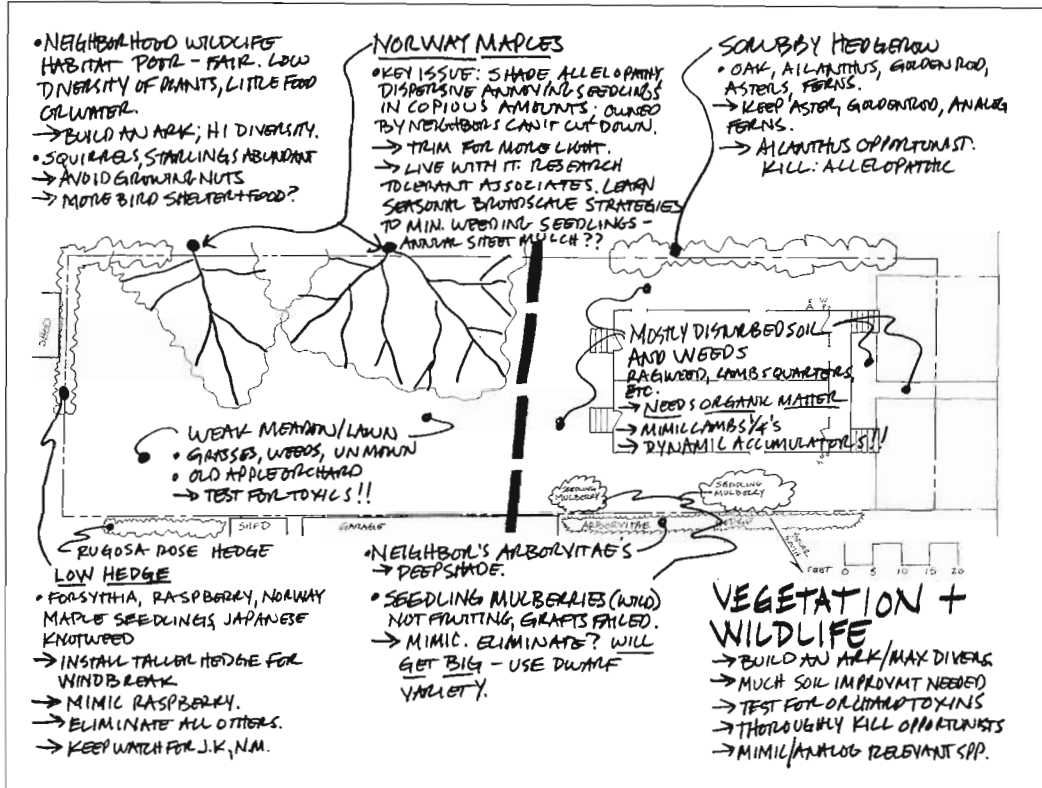 • NEIGHBORHOOD WILDLIFE
HABITAT POOR - FAIR. LOW
DIVERSITY OF PLANTS, LITTLE FOOD
OR WATER.
→ BUILD AN ARK; HI DIVERSITY.
• SQUIRRELS, STARLINGS ABUNDANT
→ AVOID GROWING NUTS
→ MORE BIRD SHELTER + FOOD?
NORWAY MAPLES
• KEY ISSUE: SHADE, ALLELOPATHY,
DISPERSIVE ANNOYING SEEDLINGS
IN COPIOUS AMOUNTS; OWNED
BY NEIGHBORS CAN'T CUT DOWN.
→ TRIM FOR MORE LIGHT.
→ LIVE WITH IT. RESEARCH
TOLERANT ASSOCIATES. LEARN
SEASONAL BROADSCALE STRATEGIES
TO MIN. WEEDING SEEDLINGS -
ANNUAL SHEET MULCH ??
SCRUBBY HEDGEROW
• OAK, AILANTHUS, GOLDENROD,
ASTERS, FERNS.
→ KEEP ASTER, GOLDENROD, ANALOG
FERNS.
→ AILANTHUS OPPORTUNIST.
KILL: ALLELOPATHIC
SHED
MOSTLY DISTURBED SOIL
AND WEEDS
RAGWEED, LAMBS QUARTERS,
ETC.
→ NEEDS ORGANIC MATTER
→ MIMIC LAMBS 1/4's
→ DYNAMIC ACCUMULATORS!!
WEAK MEADOW/LAWN
• GRASSES, WEEDS, UNMOWN
• OLD APPLE ORCHARD
→ TEST FOR TOXICS!!
SEEDLING
MULBERRY
SEEDLING
MULBERRY
SHED
GARAGE
ARBORVITAE HEDGE
RUGOSA ROSE HEDGE
LOW HEDGE
• FORSYTHIA, RASPBERRY, NORWAY
MAPLE SEEDLINGS, JAPANESE
KNOTWEED
→ INSTALL TALLER HEDGE FOR
WINDBREAK
→ MIMIC RASPBERRY.
→ ELIMINATE ALL OTHERS.
→ KEEP WATCH FOR J.K, N.M.
• NEIGHBOR'S ARBORVITAE'S
→ DEEP SHADE.
• SEEDLING MULBERRIES (WILD)
NOT FRUITING, GRAFTS FAILED.
→ MIMIC. ELIMINATE? WILL
GET BIG - USE DWARF
VARIETY.
FEET 0 5 10 15 20
VEGETATION +
WILDLIFE
→ BUILD AN ARK/MAX DIVERS
→ MUCH SOIL IMPROVMT NEEDED
→ TEST FOR ORCHARD TOXINS
→ THOROUGHLY KILL OPPORTUNISTS
→ MIMIC/ANALOG RELEVANT SPP.